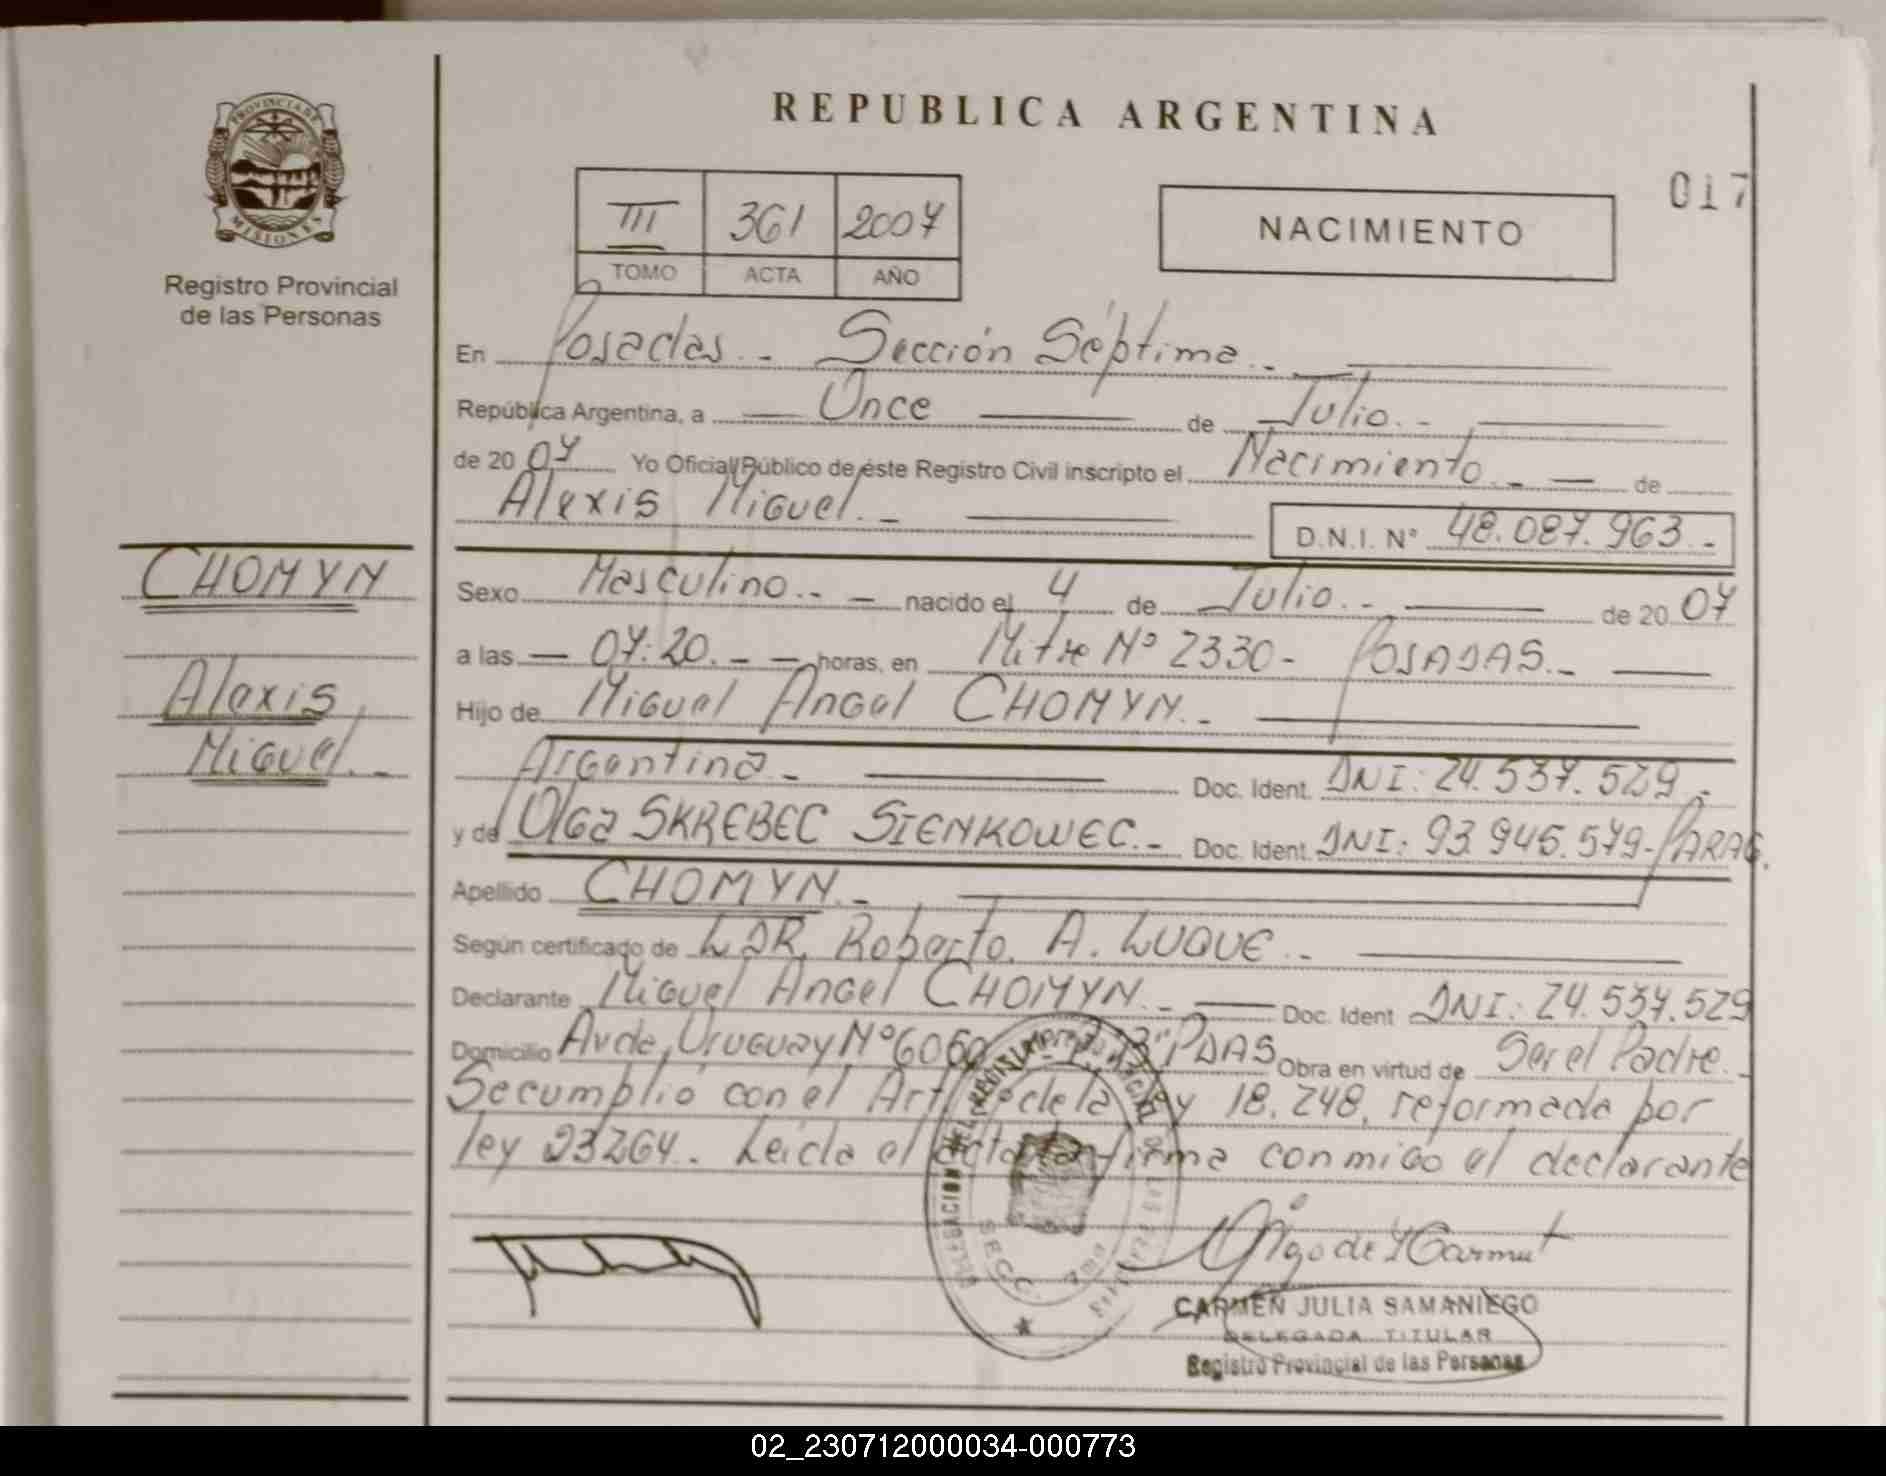 REPUBLICA ARGENTINA
PROVINCIA DE
MISIONES
Registro Provincial
de las Personas
III 361 2007
TOMO ACTA AÑO
NACIMIENTO
017
En Posadas.- Sección Séptima.-
República Argentina, a Once de Julio.-
de 2007 Yo Oficial Público de éste Registro Civil inscripto el Nacimiento.- de
Alexis Miguel.-
D.N.I. N° 48.087.963.-
CHOMYN
Alexis
Miguel.-
Sexo Masculino.- nacido el 4 de Julio.- de 2007
a las 07:20.- horas, en Mitre N° 2330- POSADAS.-
Hijo de Miguel Angel CHOMYN.-
Argentina.- Doc. Ident. DNI: 24.537.529.-
y de Olga SKREBEC SIENKOWEC.- Doc. Ident. DNI: 93.945.579-PARAG.
Apellido CHOMYN.-
Según certificado de DR. Roberto. A. LUQUE.-
Declarante Miguel Angel CHOMYN.- Doc. Ident DNI: 24.537.529
Domicilio Avda. Uruguay N° 6060 PDAS Obra en virtud de Ser el Padre.-
Se cumplió con el Art de la ley 18.248, reformada por
ley 23264.- Leída el acta firma conmigo el declarante
SECC.
CARMEN JULIA SAMANIEGO
DELEGADA TITULAR
Registro Provincial de las Personas
02_230712000034-000773